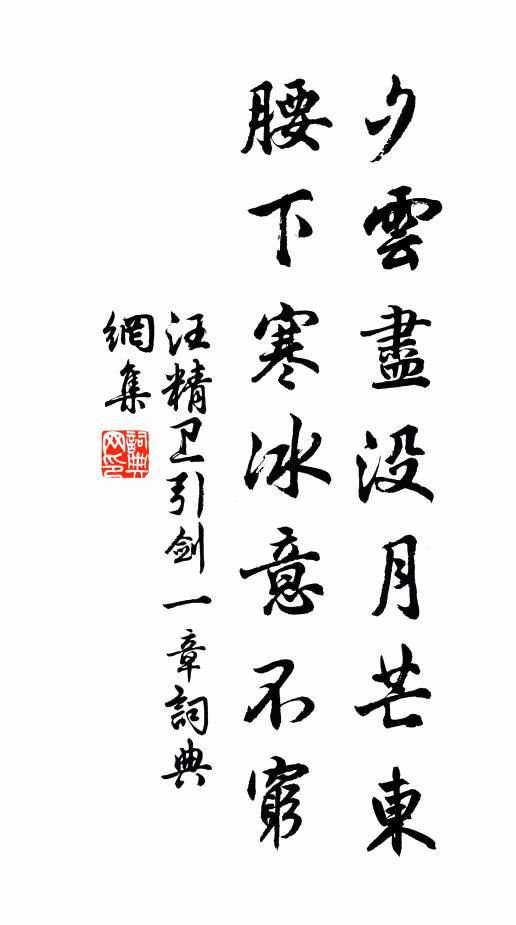 夕雲盡没月芒東
腰下寒冰意不窮
汪精卫引剑一章詞典
網集
詞典
网印